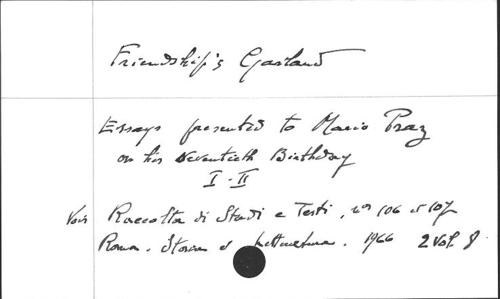 Friendship's Garland
Essays presented to Mario Praz
on his Seventieth Birthday
I-II
Voir Raccolta di Studi e Testi, nos 106 et 107
Roma. Storia e Letteratura. 1966 2 vol. 8°